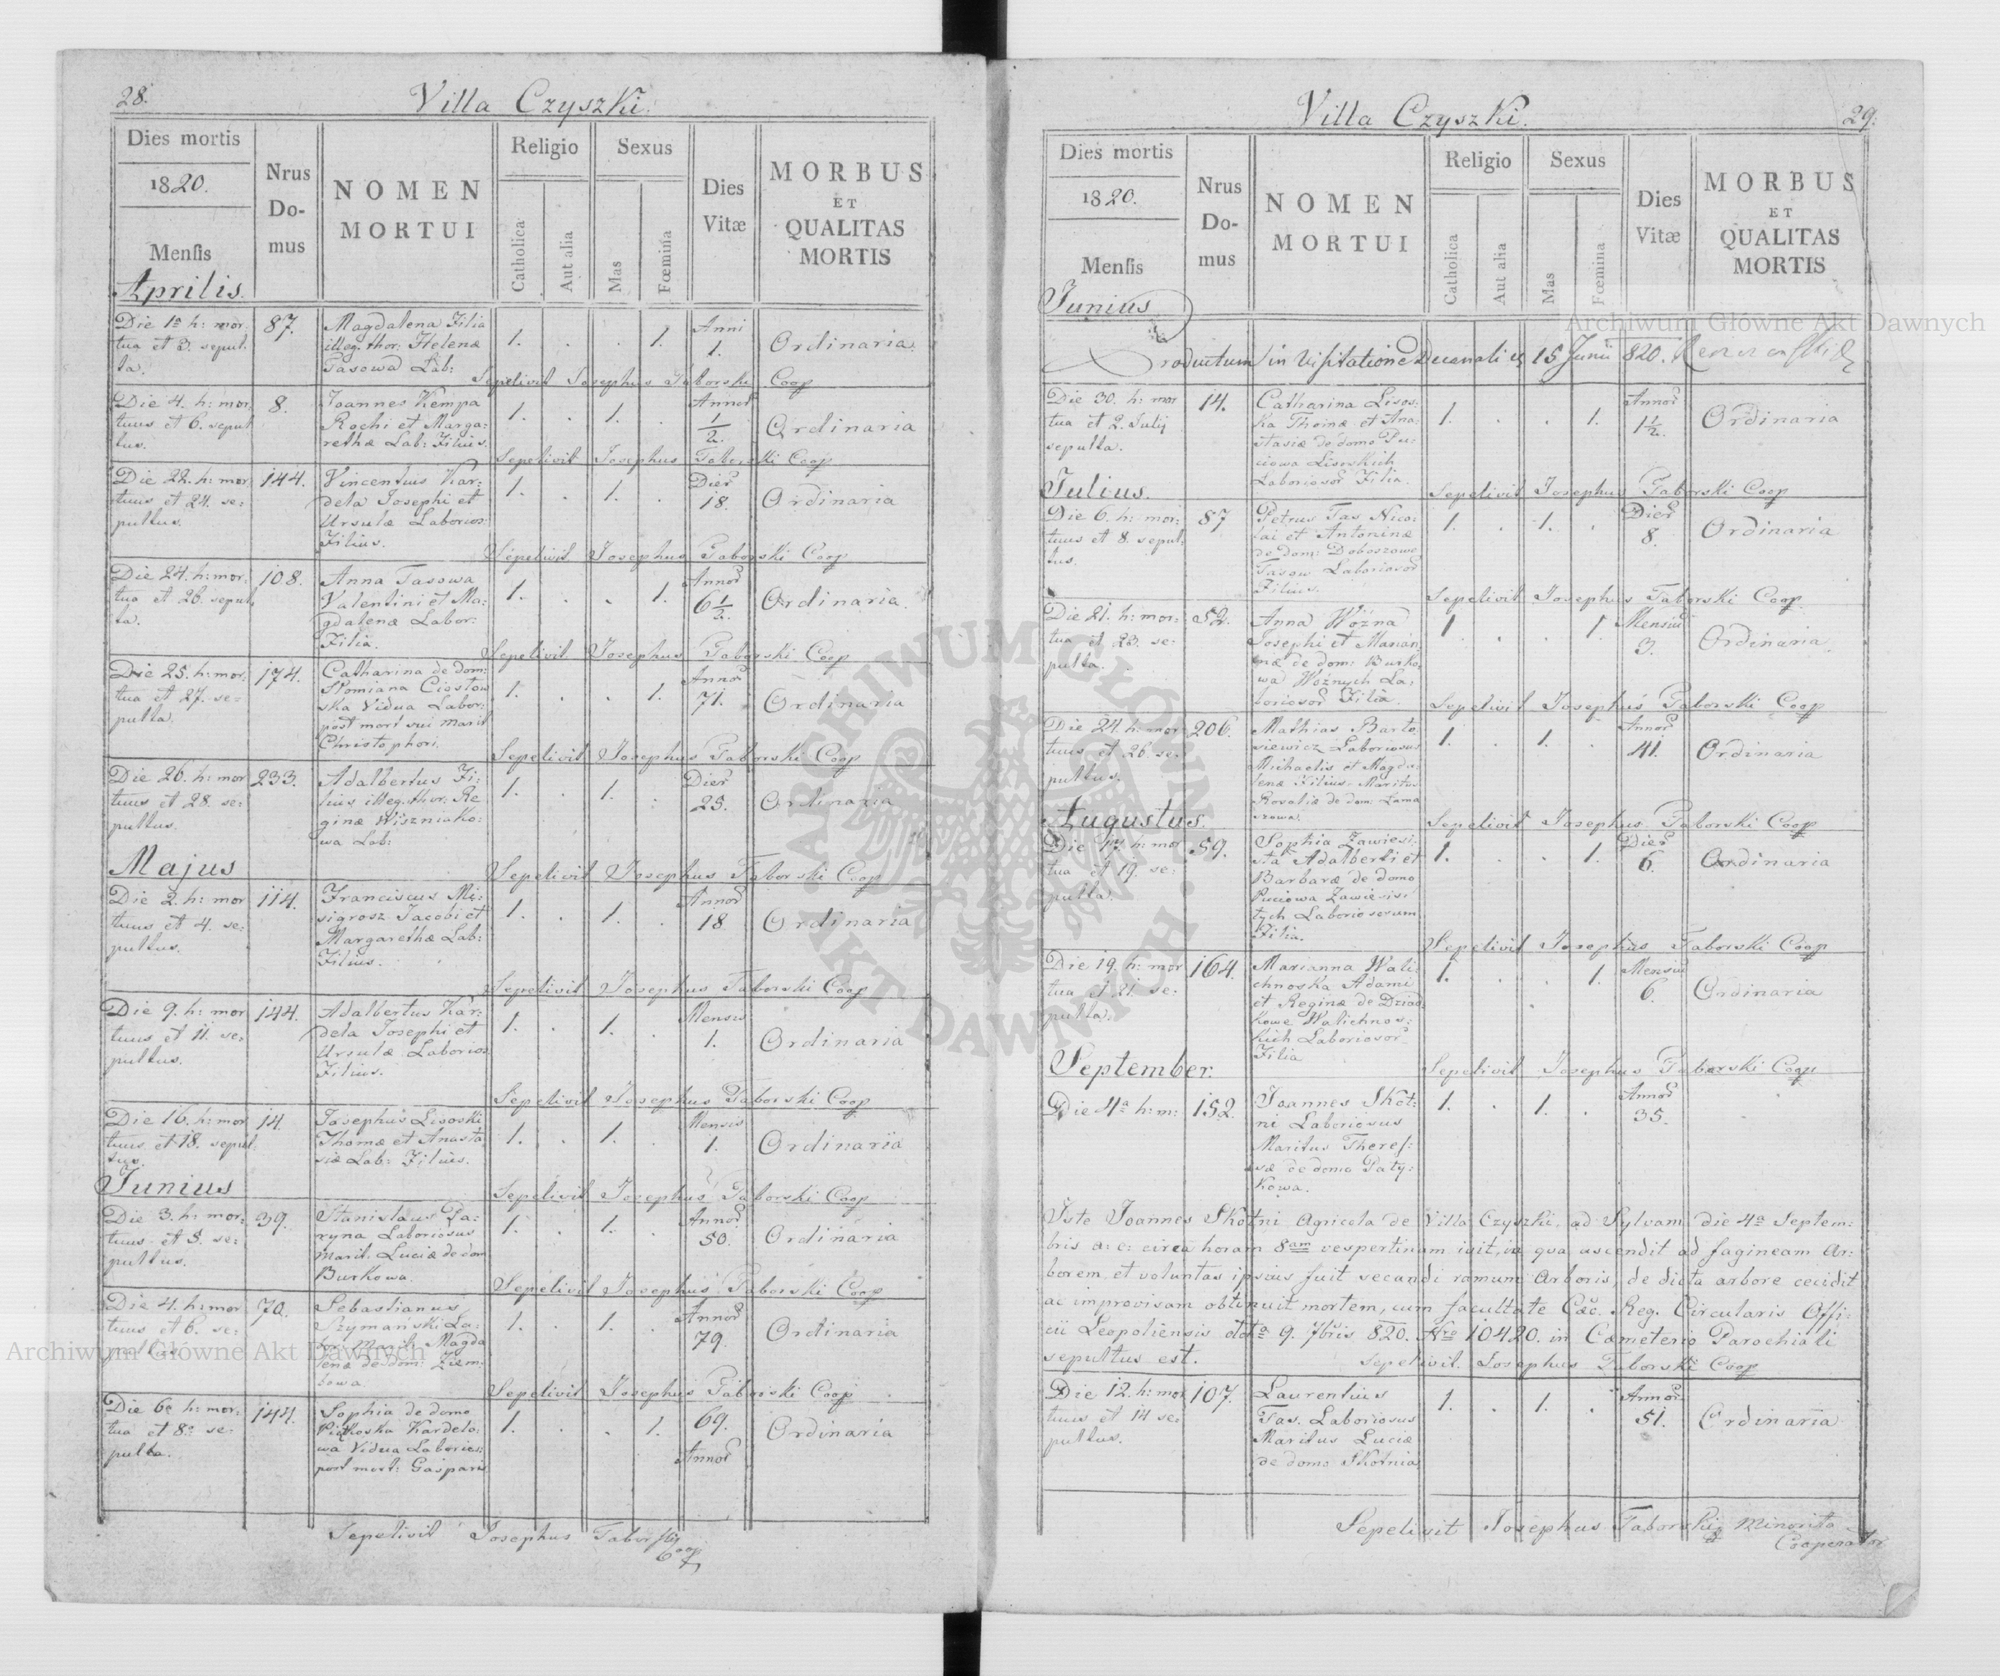 28.
Villa Czyszki.
Dies mortis
1820.
Mensis
Nrus Domus
NOMEN MORTUI
Religio
Catholica
Aut alia
Sexus
Mas
Fœmina
Dies Vitæ
MORBUS ET QUALITAS MORTIS
Aprilis.
Die 1a h: mor:
tua et 3. sepul:
ta.
87.
Magdalena Filia
illeg. thor: Helenæ
Tasowa Lab:
1. . . 1.
Anni
1.
Ordinaria.
Sepelivit Josephus Taborski Coop
Die 4. h: mor
tuus et 6. sepul
tus.
8.
Joannes Kempa
Rochi et Marga:
rethæ Lab: Filius.
1. . 1. .
Annor
1/2.
Ordinaria
Sepelivit Josephus Taborski Coop
Die 22. h: mor
tuus et 24. se:
pultus.
144.
Vincentius Kar:
dela Josephi et
Ursulæ Laborios:
Filius.
1. . 1. .
Dier
18.
Ordinaria
Sepelivit Josephus Taborski Coop
Die 24. h: mor:
tua et 26. sepul
ta.
108.
Anna Tasowa
Valentini et Ma:
gdalenæ Labor:
Filia.
1. . . 1.
Annor
6 1/2.
Ordinaria.
Sepelivit Josephus Taborski Coop
Die 25. h: mor.
tua et 27. se:
pulta.
174.
Catharina de dom:
Słomiana Ciosłow
ska Vidua Labor:
post mort sui Marit
Christophori.
1. . . 1.
Annor
71.
Ordinaria
Sepelivit Josephus Taborski Coop
Die 26. h: mor
tuus et 28. se:
pultus.
233.
Adalbertus Fi:
lius illeg. thor. Re
ginæ Wiszniako:
wa Lab:
1. . 1. .
Dier
25.
Ordinaria
Majus
Sepelivit Josephus Taborski Coop
Die 2. h: mor
tuus et 4. se:
pultus.
114.
Franciscus Mi:
sigrosz Jacobi et
Margarethæ Lab:
Filius.
1. . 1. .
Annor
18
Ordinaria
Sepelivit Josephus Taborski Coop
Die 9. h: mor
tuus et 11. se:
pultus.
144.
Adalbertus Kar:
dela Josephi et
Ursulæ Laborios
Filius.
1. . 1. .
Mensis
1.
Ordinaria
Sepelivit Josephus Taborski Coop
Die 16. h: mor
tuus et 18. sepul:
tus.
14.
Josephus Lisoski
Thomæ et Anasta
siæ Lab: Filius.
1. . 1. .
Mensis
1.
Ordinaria
Junius
Sepelivit Josephus Taborski Coop
Die 3. h: mor:
tuus et 5. se:
pultus.
39.
Stanislaus Pa:
ryna Laboriosus
Marit. Luciæ de dom
Burkowa.
1. . 1. .
Annor
50.
Ordinaria
Sepelivit Josephus Taborski Coop
Die 4. h: mor
tuus et 6. se:
pultus.
70.
Sebastianus
Szymański La:
bor. Marit: Magda
lenæ de dom: Ziem:
bowa.
1. . 1. .
Annor
79.
Ordinaria
Sepelivit Josephus Taborski Coop
Die 6a h: mor:
tua et 8a se:
pulta.
144.
Sophia de domo
Piątkoska Kardelo:
wa Vidua Laborios:
post mort: Gasparis
1. . . 1.
69.
Annor
Ordinaria
Sepelivit Josephus Taborski
Coop
Villa Czyszki.
29.
Dies mortis
1820.
Mensis
Nrus Domus
NOMEN MORTUI
Religio
Catholica
Aut alia
Sexus
Mas
Fœmina
Dies Vitæ
MORBUS ET QUALITAS MORTIS
Junius
Productum in Visitatione Decanali 15 Junii 820.
Die 30. h: mor
tua et 2. Julij
sepulta.
14.
Catharina Lisos:
ka Thomæ et Ana:
stasiæ de domo Pu:
ciowa Lisoskich
Laboriosor Filia.
1. . . 1.
Annor
1 1/2.
Ordinaria
Julius.
Sepelivit Josephus Taborski Coop
Die 6. h: mor:
tuus et 8. sepul:
tus.
87
Petrus Tas Nico:
lai et Antoninæ
de dom: Doboszowe
Tasow Laboriosor
Filius.
1. . 1. .
Dier
8.
Ordinaria
Sepelivit Josephus Taborski Coop.
Die 21. h: mor:
tua et 23. se:
pulta.
52.
Anna Wózna
Josephi et Marian
næ de dom: Burko
wa Wóźnych La:
boriosor Filia.
1. . . 1.
Mensiu
3.
Ordinaria.
Sepelivit Josephus Taborski Coop
Die 24. h: mor
tuus et 26. se:
pultus.
206.
Mathias Barto
siewicz Laboriosus
Michaelis et Magda:
lenæ Filius. Maritus
Rosaliæ de dom: Lama
rowa.
1. . 1. .
Annor
41.
Ordinaria
Augustus.
Sepelivit Josephus Taborski Coop
Die 17. h: mor
tua et 19. se:
pulta.
59.
Sophia Zawiesi:
sta Adalberti et
Barbaræ de domo
Puciowa Zawiesis:
tych Laboriosorum
Filia.
1. . . 1.
Dier
6.
Ordinaria
Sepelivit Josephus Taborski Coop
Die 19. h: mor
tua et 21. se:
pulta.
164.
Marianna Wali:
chnoska Adami
et Reginæ de Dziad
kowe Walichnos:
kich Laboriosor
Filia
1. . . 1.
Mensiu
6.
Ordinaria
September.
Sepelivit Josephus Taborski Coop
Die 4a h: m:
152.
Joannes Skot:
ni Laboriosus
Maritus Theres:
siæ de domo Paty:
kowa.
1. . 1. .
Annor
35.
Iste Joannes Skotni Agricola de Villa Czyszki, ad Sylvam die 4a Septem:
bris a: c: circa horam 8am vespertinam ivit, in qua ascendit ad fagineam Ar:
borem, et voluntas ipsius fuit secandi ramum Arboris, de dicta arbore cecidit
ac improvisam obtinuit mortem, cum facultate Cæs. Reg. Circularis Offi:
cii Leopoliensis dtta 9. 7bris 820. Nro 10420. in Cæmeterio Parochiali
sepultus est.
Sepelivit. Josephus Taborski Coop
Die 12. h: mor
tuus et 14 se:
pultus.
107.
Laurentius
Tas. Laboriosus
Maritus Luciæ
de domo Skotnia
1. . 1. .
Annor
51.
Ordinaria
Sepelivit Josephus Taborski Minorita
Cooperator
Archiwum Główne Akt Dawnych
Archiwum Główne Akt Dawnych
ARCHIWUM GŁÓWNE AKT DAWNYCH